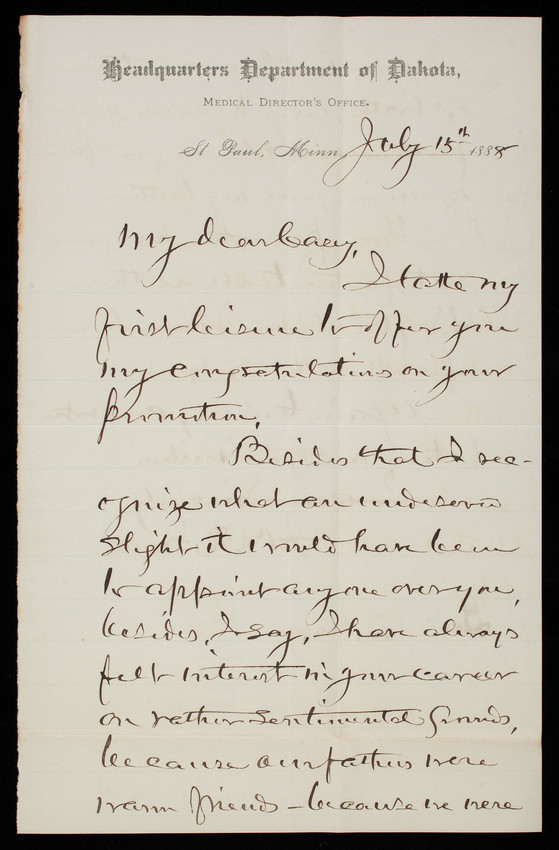 Headquarters Department of Dakota,
MEDICAL DIRECTOR'S OFFICE.
St Paul, Minn, July 15th 1888
My dear Casey,
I take my
first leisure to offer you
my congratulations on your
promotion.
Besides that I rec-
ognize what an undeserved
slight it would have been
to appoint any one over you,
besides, I say, I have always
felt interest in your career
on rather sentimental grounds,
because our fathers were
warm friends - because we were